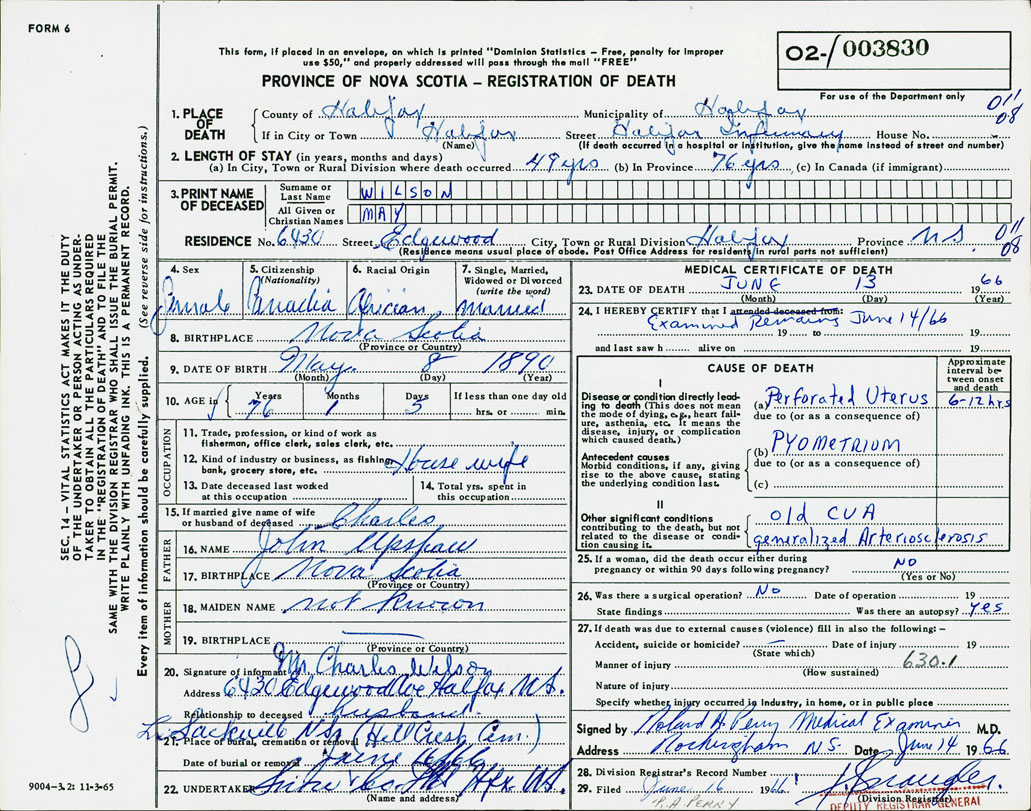 FORM 6
This form, if placed in an envelope, on which is printed "Dominion Statistics – Free, penalty for improper
use $50," and properly addressed will pass through the mail "FREE"
PROVINCE OF NOVA SCOTIA – REGISTRATION OF DEATH
O2-/003830
For use of the Department only
011
08
1. PLACE OF DEATH
County of Halifax Municipality of Halifax
If in City or Town Halifax Street Halifax Infirmary House No.
(Name) (If death occurred in a hospital or institution, give the name instead of street and number)
2. LENGTH OF STAY (in years, months and days)
(a) In City, Town or Rural Division where death occurred 49 yrs (b) In Province 76 yrs (c) In Canada (if immigrant)
3. PRINT NAME OF DECEASED
Surname or Last Name WILSON
All Given or Christian Names MAY
RESIDENCE No. 6430 Street Edgewood City, Town or Rural Division Halifax Province N.S. 011
08
(Residence means usual place of abode. Post Office Address for residents in rural parts not sufficient)
4. Sex
Female
5. Citizenship (Nationality)
Canadia
6. Racial Origin
7. Single, Married, Widowed or Divorced (write the word)
Married
8. BIRTHPLACE Nova Scotia
(Province or Country)
9. DATE OF BIRTH May 8 1890
(Month) (Day) (Year)
10. AGE in Years Months Days If less than one day old
76 1 5 hrs. or min.
OCCUPATION
11. Trade, profession, or kind of work as
fisherman, office clerk, sales clerk, etc.
12. Kind of industry or business, as fishing,
bank, grocery store, etc. House wife
13. Date deceased last worked
at this occupation
14. Total yrs. spent in
this occupation
15. If married give name of wife
or husband of deceased Charles
FATHER
16. NAME John Upshaw
17. BIRTHPLACE Nova Scotia
(Province or Country)
MOTHER
18. MAIDEN NAME not known
19. BIRTHPLACE
(Province or Country)
20. Signature of informant Mr. Charles Wilson
Address 6430 Edgewood Ave Halifax N.S.
Relationship to deceased husband
Sackville N.S. (Hill Crest Cem.)
21. Place of burial, cremation or removal
Date of burial or removal June
22. UNDERTAKER Hfx N.S.
(Name and address)
MEDICAL CERTIFICATE OF DEATH
23. DATE OF DEATH JUNE 13 1966
(Month) (Day) (Year)
24. I HEREBY CERTIFY that I attended deceased from:
Examined Remains June 14/66
19 to 19
and last saw h alive on 19
CAUSE OF DEATH
Approximate interval between onset and death
I
Disease or condition directly leading to death (This does not mean the mode of dying, e.g., heart failure, asthenia, etc. It means the disease, injury, or complication which caused death.)
(a) Perforated Uterus 6-12 hrs
due to (or as a consequence of)
Antecedent causes
Morbid conditions, if any, giving rise to the above cause, stating the underlying condition last.
(b) PYOMETRIUM
due to (or as a consequence of)
(c)
II
Other significant conditions
contributing to the death, but not related to the disease or condition causing it.
old CVA
generalized Arteriosclerosis
25. If a woman, did the death occur either during
pregnancy or within 90 days following pregnancy? NO
(Yes or No)
26. Was there a surgical operation? No Date of operation 19
State findings Was there an autopsy? Yes
27. If death was due to external causes (violence) fill in also the following: –
Accident, suicide or homicide? Date of injury 19
(State which)
Manner of injury 630.1
(How sustained)
Nature of injury
Specify whether injury occurred in industry, in home, or in public place
Signed by Roland A. Perry Medical Examiner M.D.
Address Rockingham N.S. Date June 14 1966
28. Division Registrar's Record Number
29. Filed June 16 1966
(Division Registrar)
R.A. PERRY
DEPUTY REGISTRAR GENERAL
9004-3.2: 11-3-65
SEC. 14 – VITAL STATISTICS ACT MAKES IT THE DUTY
OF THE UNDERTAKER OR PERSON ACTING AS UNDER-
TAKER TO OBTAIN ALL THE PARTICULARS REQUIRED
IN THE "REGISTRATION OF DEATH" AND TO FILE THE
SAME WITH THE DIVISION REGISTRAR WHO SHALL ISSUE THE BURIAL PERMIT.
WRITE PLAINLY WITH UNFADING INK. THIS IS A PERMANENT RECORD.
Every item of information should be carefully supplied. (See reverse side for instructions.)